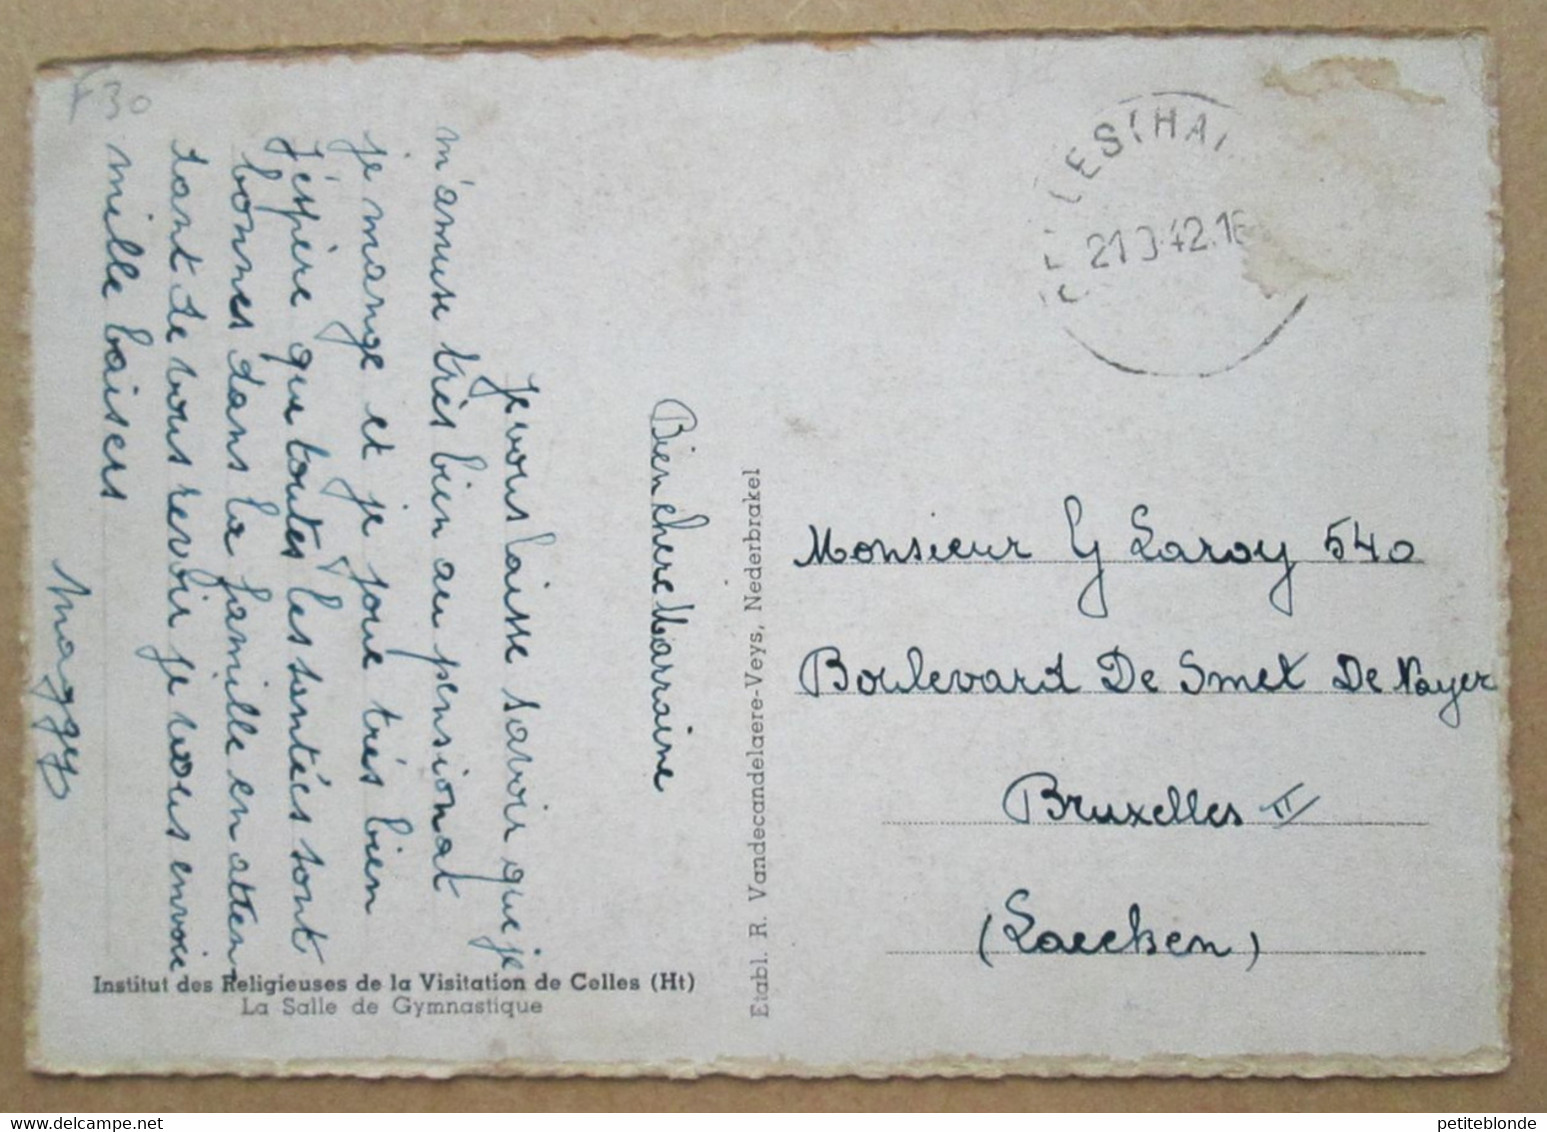 F 30
Bien chere Marraine
Je vous laisse savoir que je
m'amuse très bien au pensionat
je mange et je joue très bien
J'éspère que toutes les santées sont
bonnes dans la famille en atten
tant de vous revoir je vous envoie
mille baisers
Maggy
Institut des Religieuses de la Visitation de Celles (Ht)
La Salle de Gymnastique
Etabl. R. Vandecandelaere-Veys, Nederbrakel
LES (HAI
42.16
Monsieur G Laroy 540
Boulevard De Smet De Nayer
Bruxelles II
(Laecken)
petiteblonde